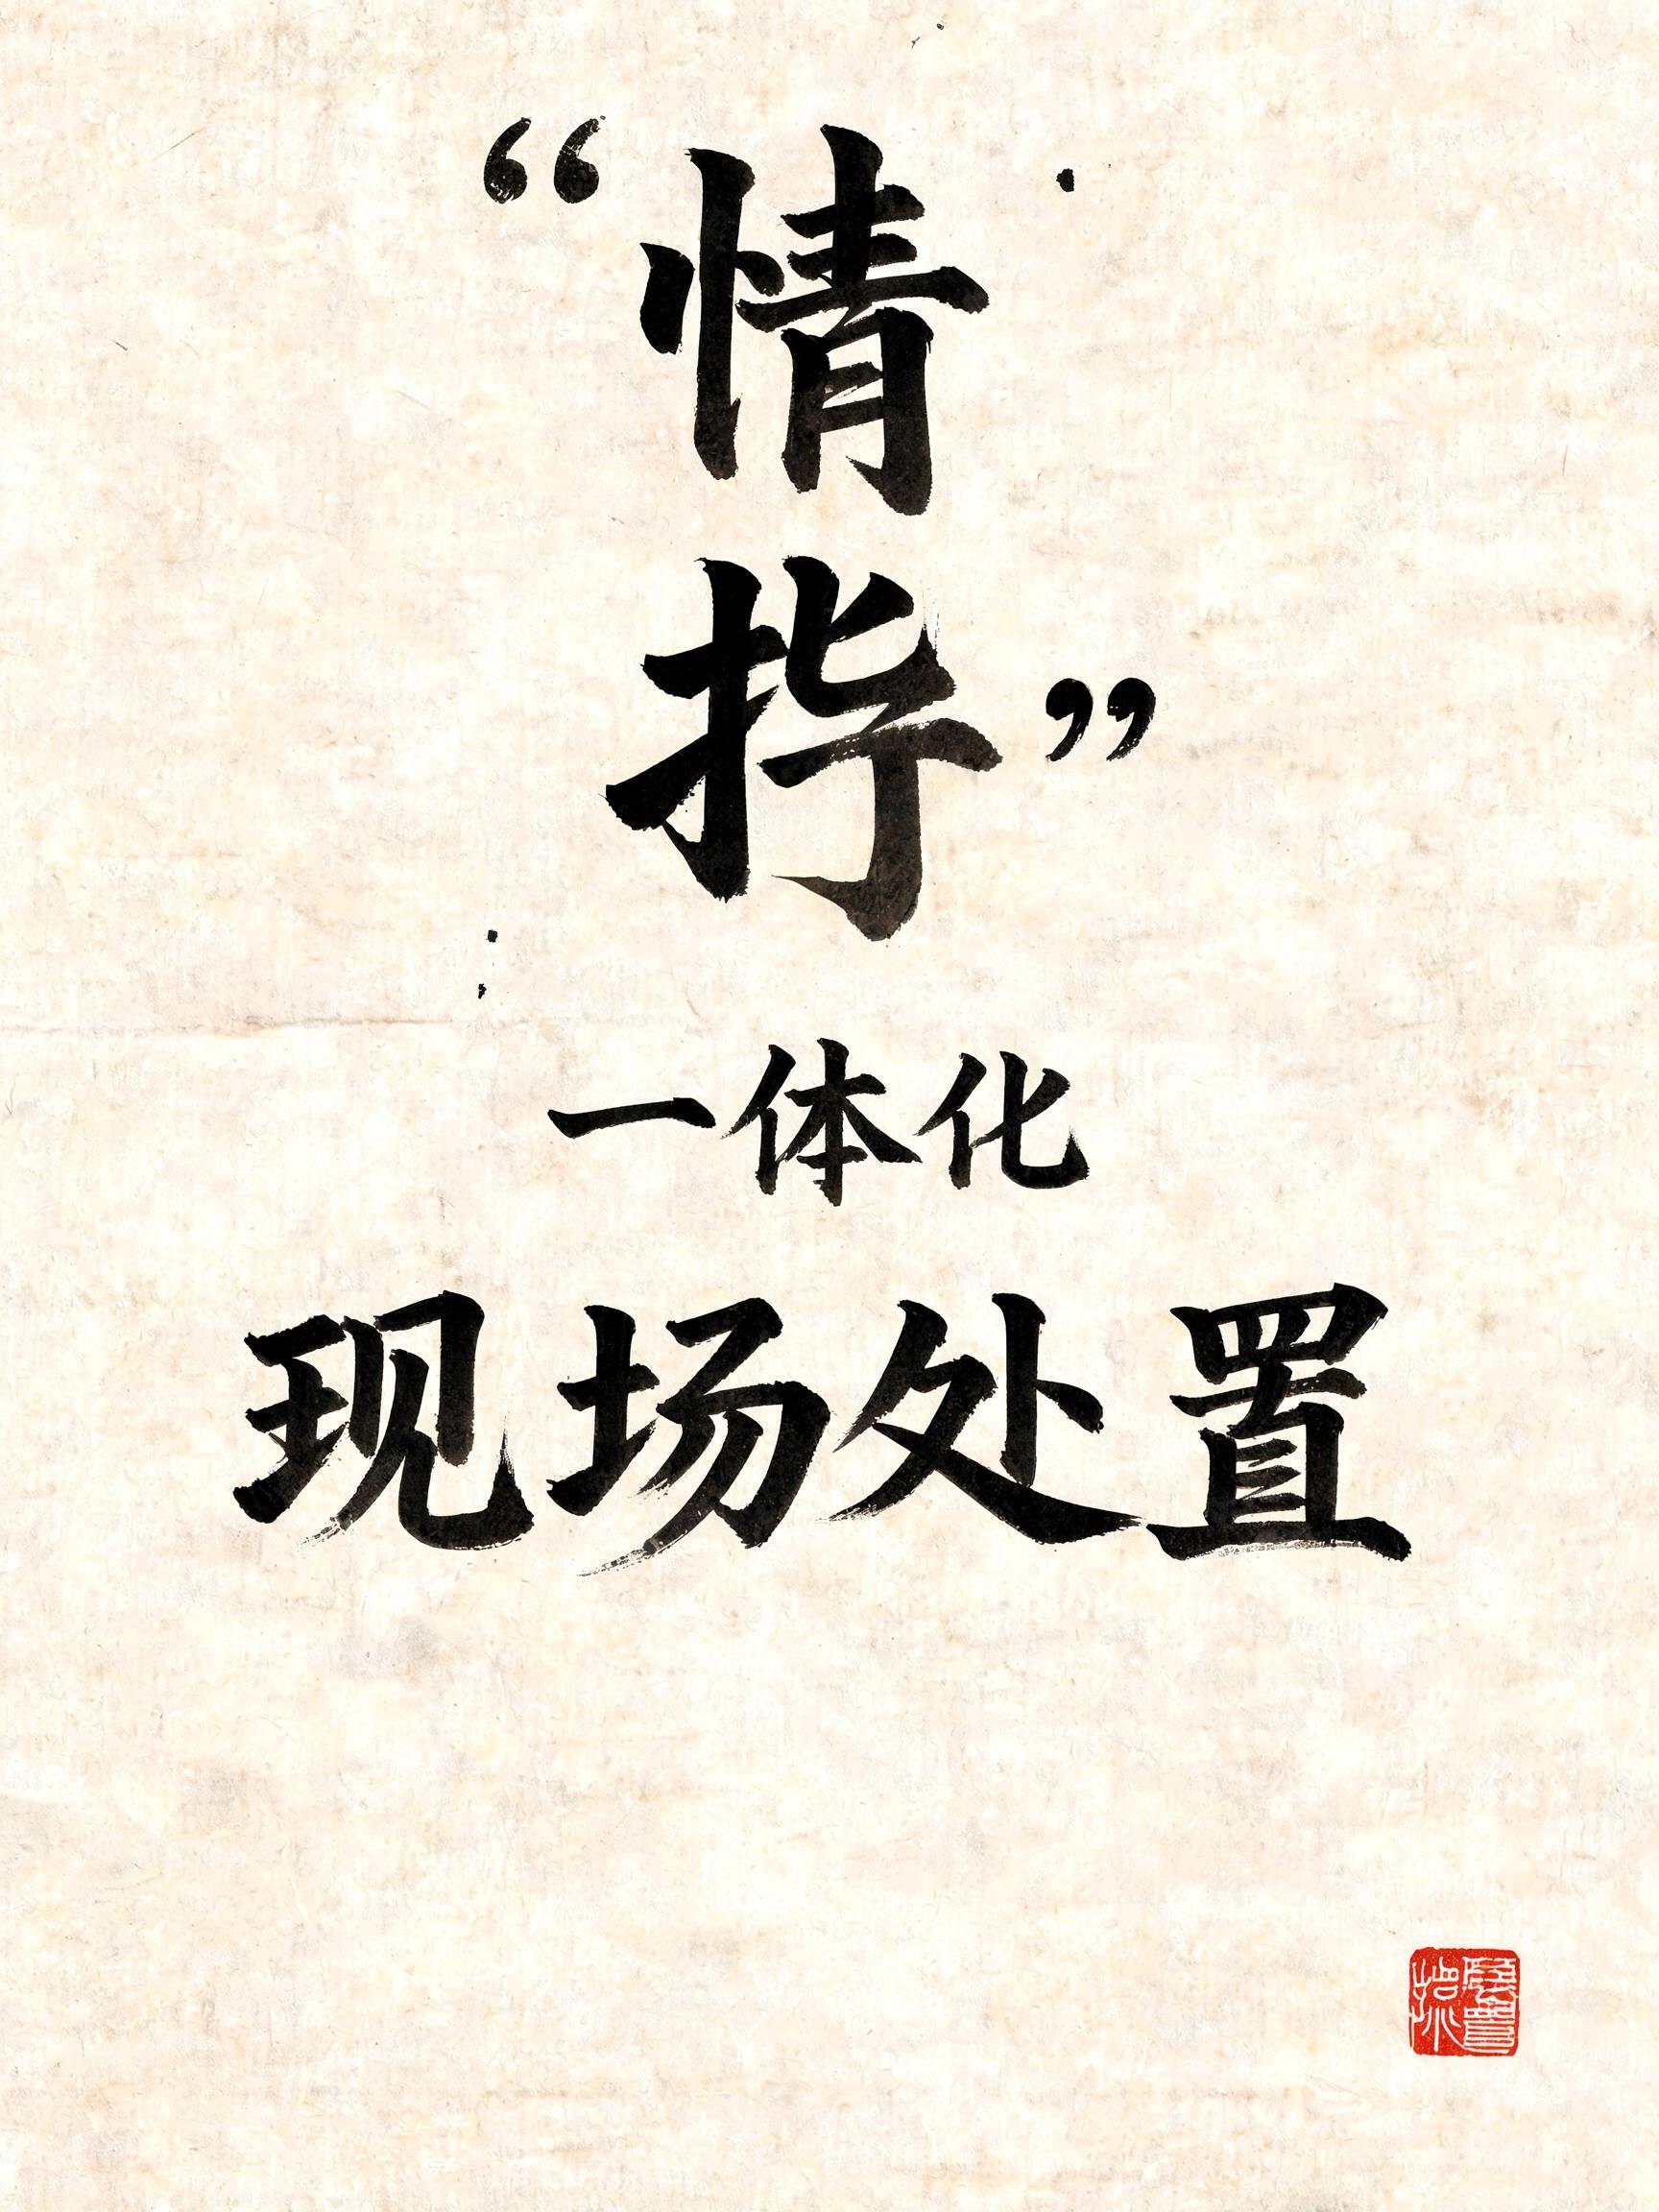 “情
”
一体化
现场处置